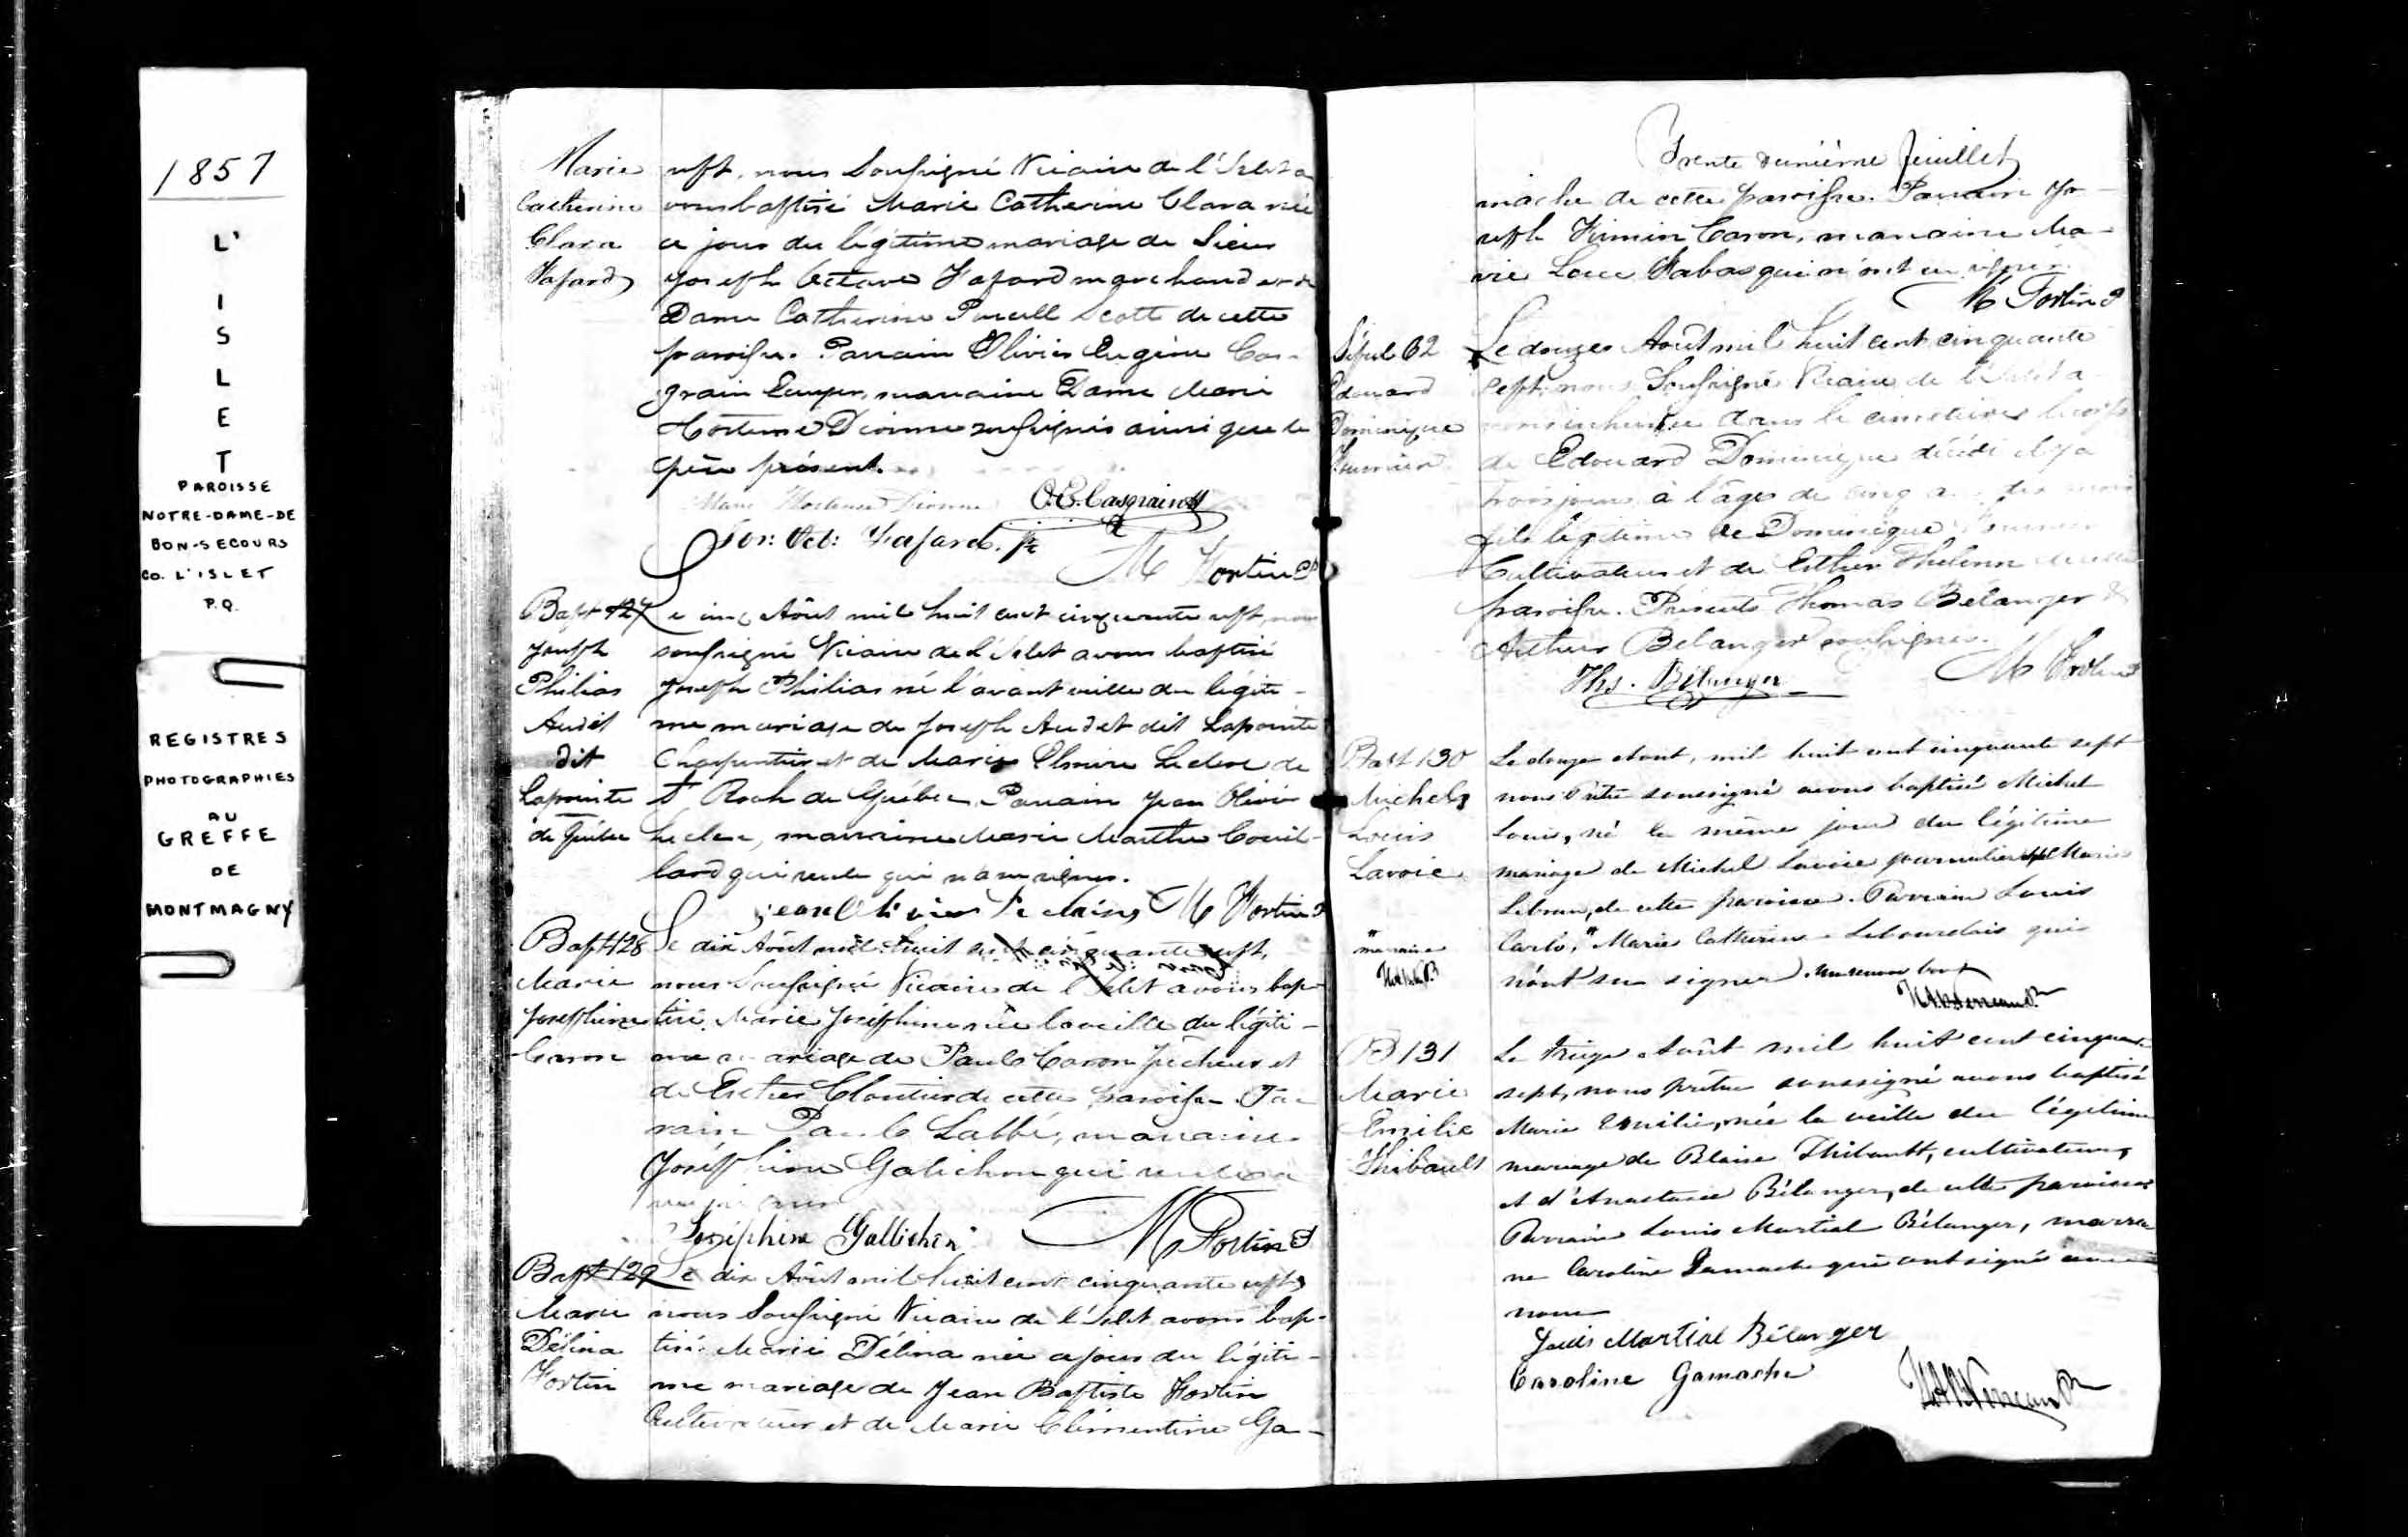 1857
L'
I
S
L
E
T
PAROISSE
NOTRE-DAME-DE
BON-SECOURS
CO. L'ISLET
P.Q.
REGISTRES
PHOTOGRAPHIES
AU
GREFFE
DE
MONTMAGNY
Marie
Catherine
Clara
Fafard
sept, nous Soussigné Vicaire de l'Islet a
vons baptisé Marie Catherine Clara née
ce jour du légitime mariage de Sieur
Joseph Octave Fafard marchand et de
Dame Catherine Purcell Scott de cette
paroisse. Parrain Olivier Eugène Cas-
grain Ecuyer, marraine Dame Marie
Hortense Dionne soussignés ainsi que le
père présent.
Marie Hortense Dionne O.E. Casgrain
Jos: Oct: Fafard.
M Fortin P
Bapt 127
Joseph
Philias
Audet
dit
Lapointe
de Québec
Le cinq Août mil huit cent cinquante sept, nous
soussigné Vicaire de l'Islet avons baptisé
Joseph Philias né l'avant veille du légiti-
me mariage de Joseph Audet dit Lapointe
Charpentier et de Marie Elmire Leclerc de
St Roch de Québec. Parrain Jean Olivier
Leclerc, marraine Marie Marthe Couil-
lard qui
M Fortin P
Bapt 128
Marie
Josephine
Caron
Le dix Août mil huit cent cinquante sept,
nous Soussigné Vicaire de l'Islet avons bap-
tisé Marie Joséphine née la veille du légiti-
me mariage de Paul Caron pêcheur et
de Esther Cloutier de cette paroisse. Par
rain Paul Labbé, marraine
Joséphine Galichon qui seule a
Joséphine Gallichon
M Fortin P
Bapt 129
Marie
Délina
Fortin
Le dix Août mil huit cent cinquante sept,
nous Soussigné Vicaire de l'Islet avons bap-
tisé Marie Délina née ce jour du légiti-
me mariage de Jean Baptiste Fortin
Cultivateur et de Marie Clémentine Ga-
Trente deuxième feuillet
mache de cette paroisse. Parrain Jo-
seph Firmin Caron, marraine Ma-
rie Luce qui n'ont su signer.
M Fortin P
Sépul 62
Edouard
Dominique
Fournier
Le douze Août mil huit cent cinquante
sept, nous Soussigné Vicaire de l'Islet a-
vons inhumé dans le cimetière le corps
de Edouard Dominique décédé il y a
trois jours à l'âge de cinq
fils légitime de Dominique Fournier
Cultivateur et de Esther de cette
paroisse. Présents Thomas Bélanger &
Arthur Bélanger
Ths. Bélanger
M Fortin P
Bapt 130
Michel
Louis
Lavoie
Le douze Aout, mil huit cent cinquante sept
nous Prêtre soussigné avons baptisé Michel
Louis, né le même jour du légitime
mariage de Michel Lavoie journalier et de Marie
Lebrun, de cette paroisse. Parrain Louis
" Marie Catherine Lebourdais qui
n'ont su signer.
" marraine
B 131
Marie
Emilie
Thibault
Le treize Août mil huit cent cinquante
sept, nous prêtre soussigné avons baptisé
Marie Emilie, née la veille du légitime
mariage de Blaise Thibault, cultivateur,
et d'Anastasie Bélanger, de cette paroisse
Parrain Louis Martial Bélanger, marrai
ne Caroline Gamache qui ont signé avec
nous
Louis Martial Bélanger
Caroline Gamache